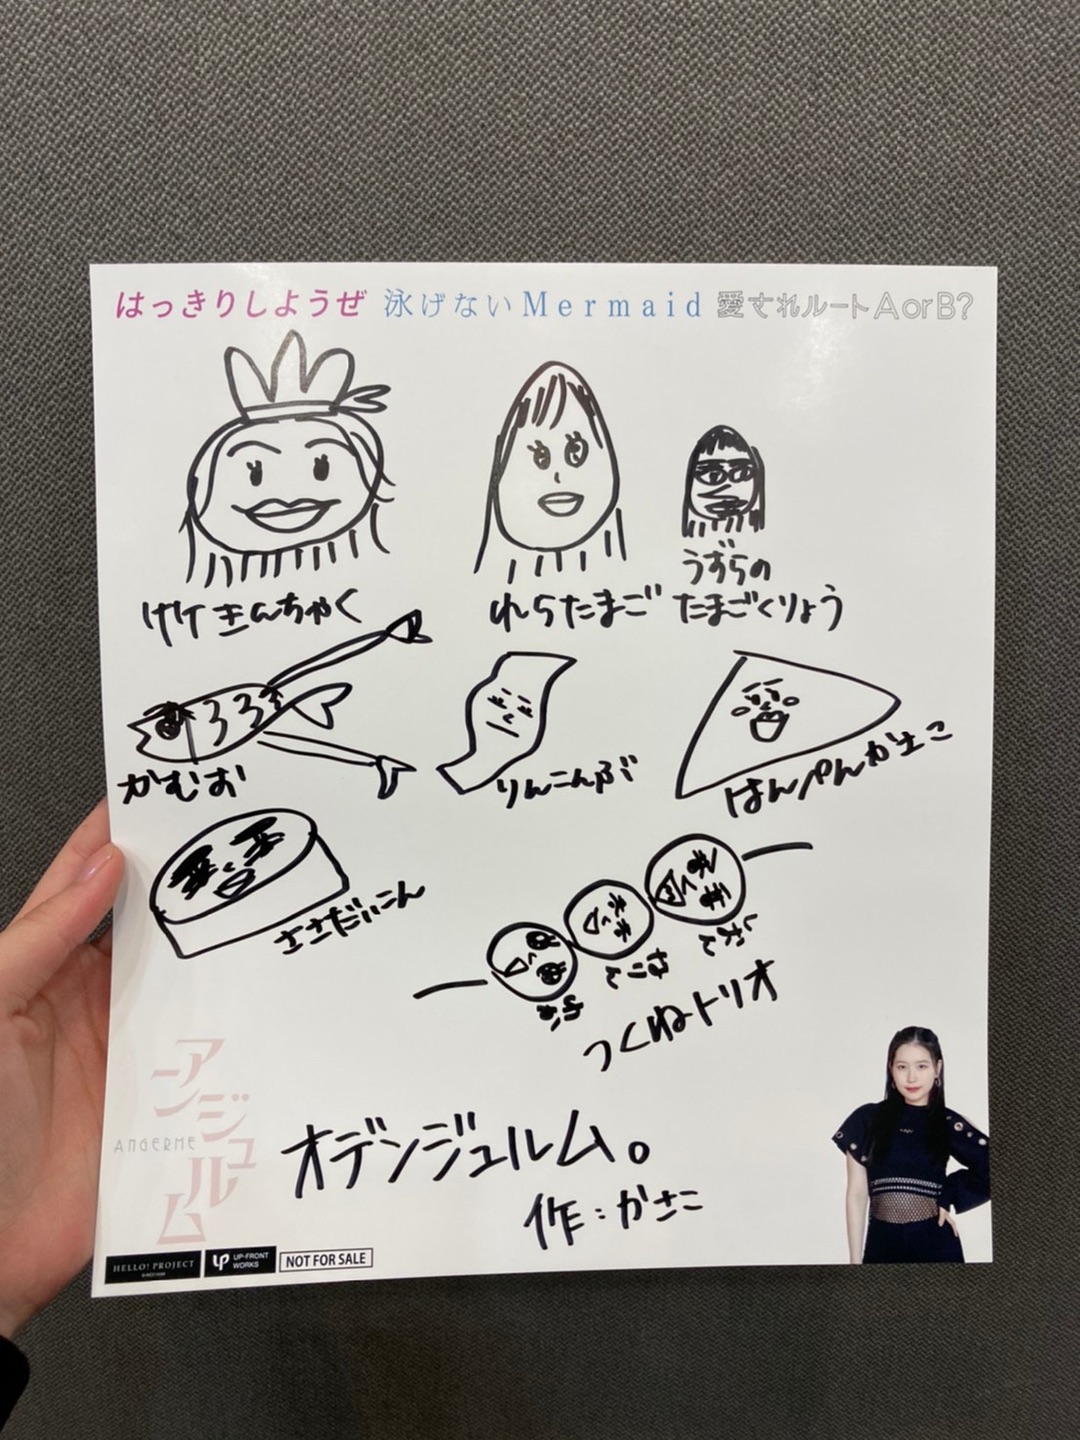 はっきりしようぜ 泳げないMermaid 愛されルートAorB?
けけきんちゃく
れらたまご
うずらの
たまごくりょう
かむお
りんこんぶ
はんぺんかさこ
ささだいこん
わかな
ねこん
しおん
つくねトリオ
アンジュルム
ANGERME
オデンジュルム。
作：かさこ
HELLO! PROJECT
UP-FRONT
WORKS
NOT FOR SALE